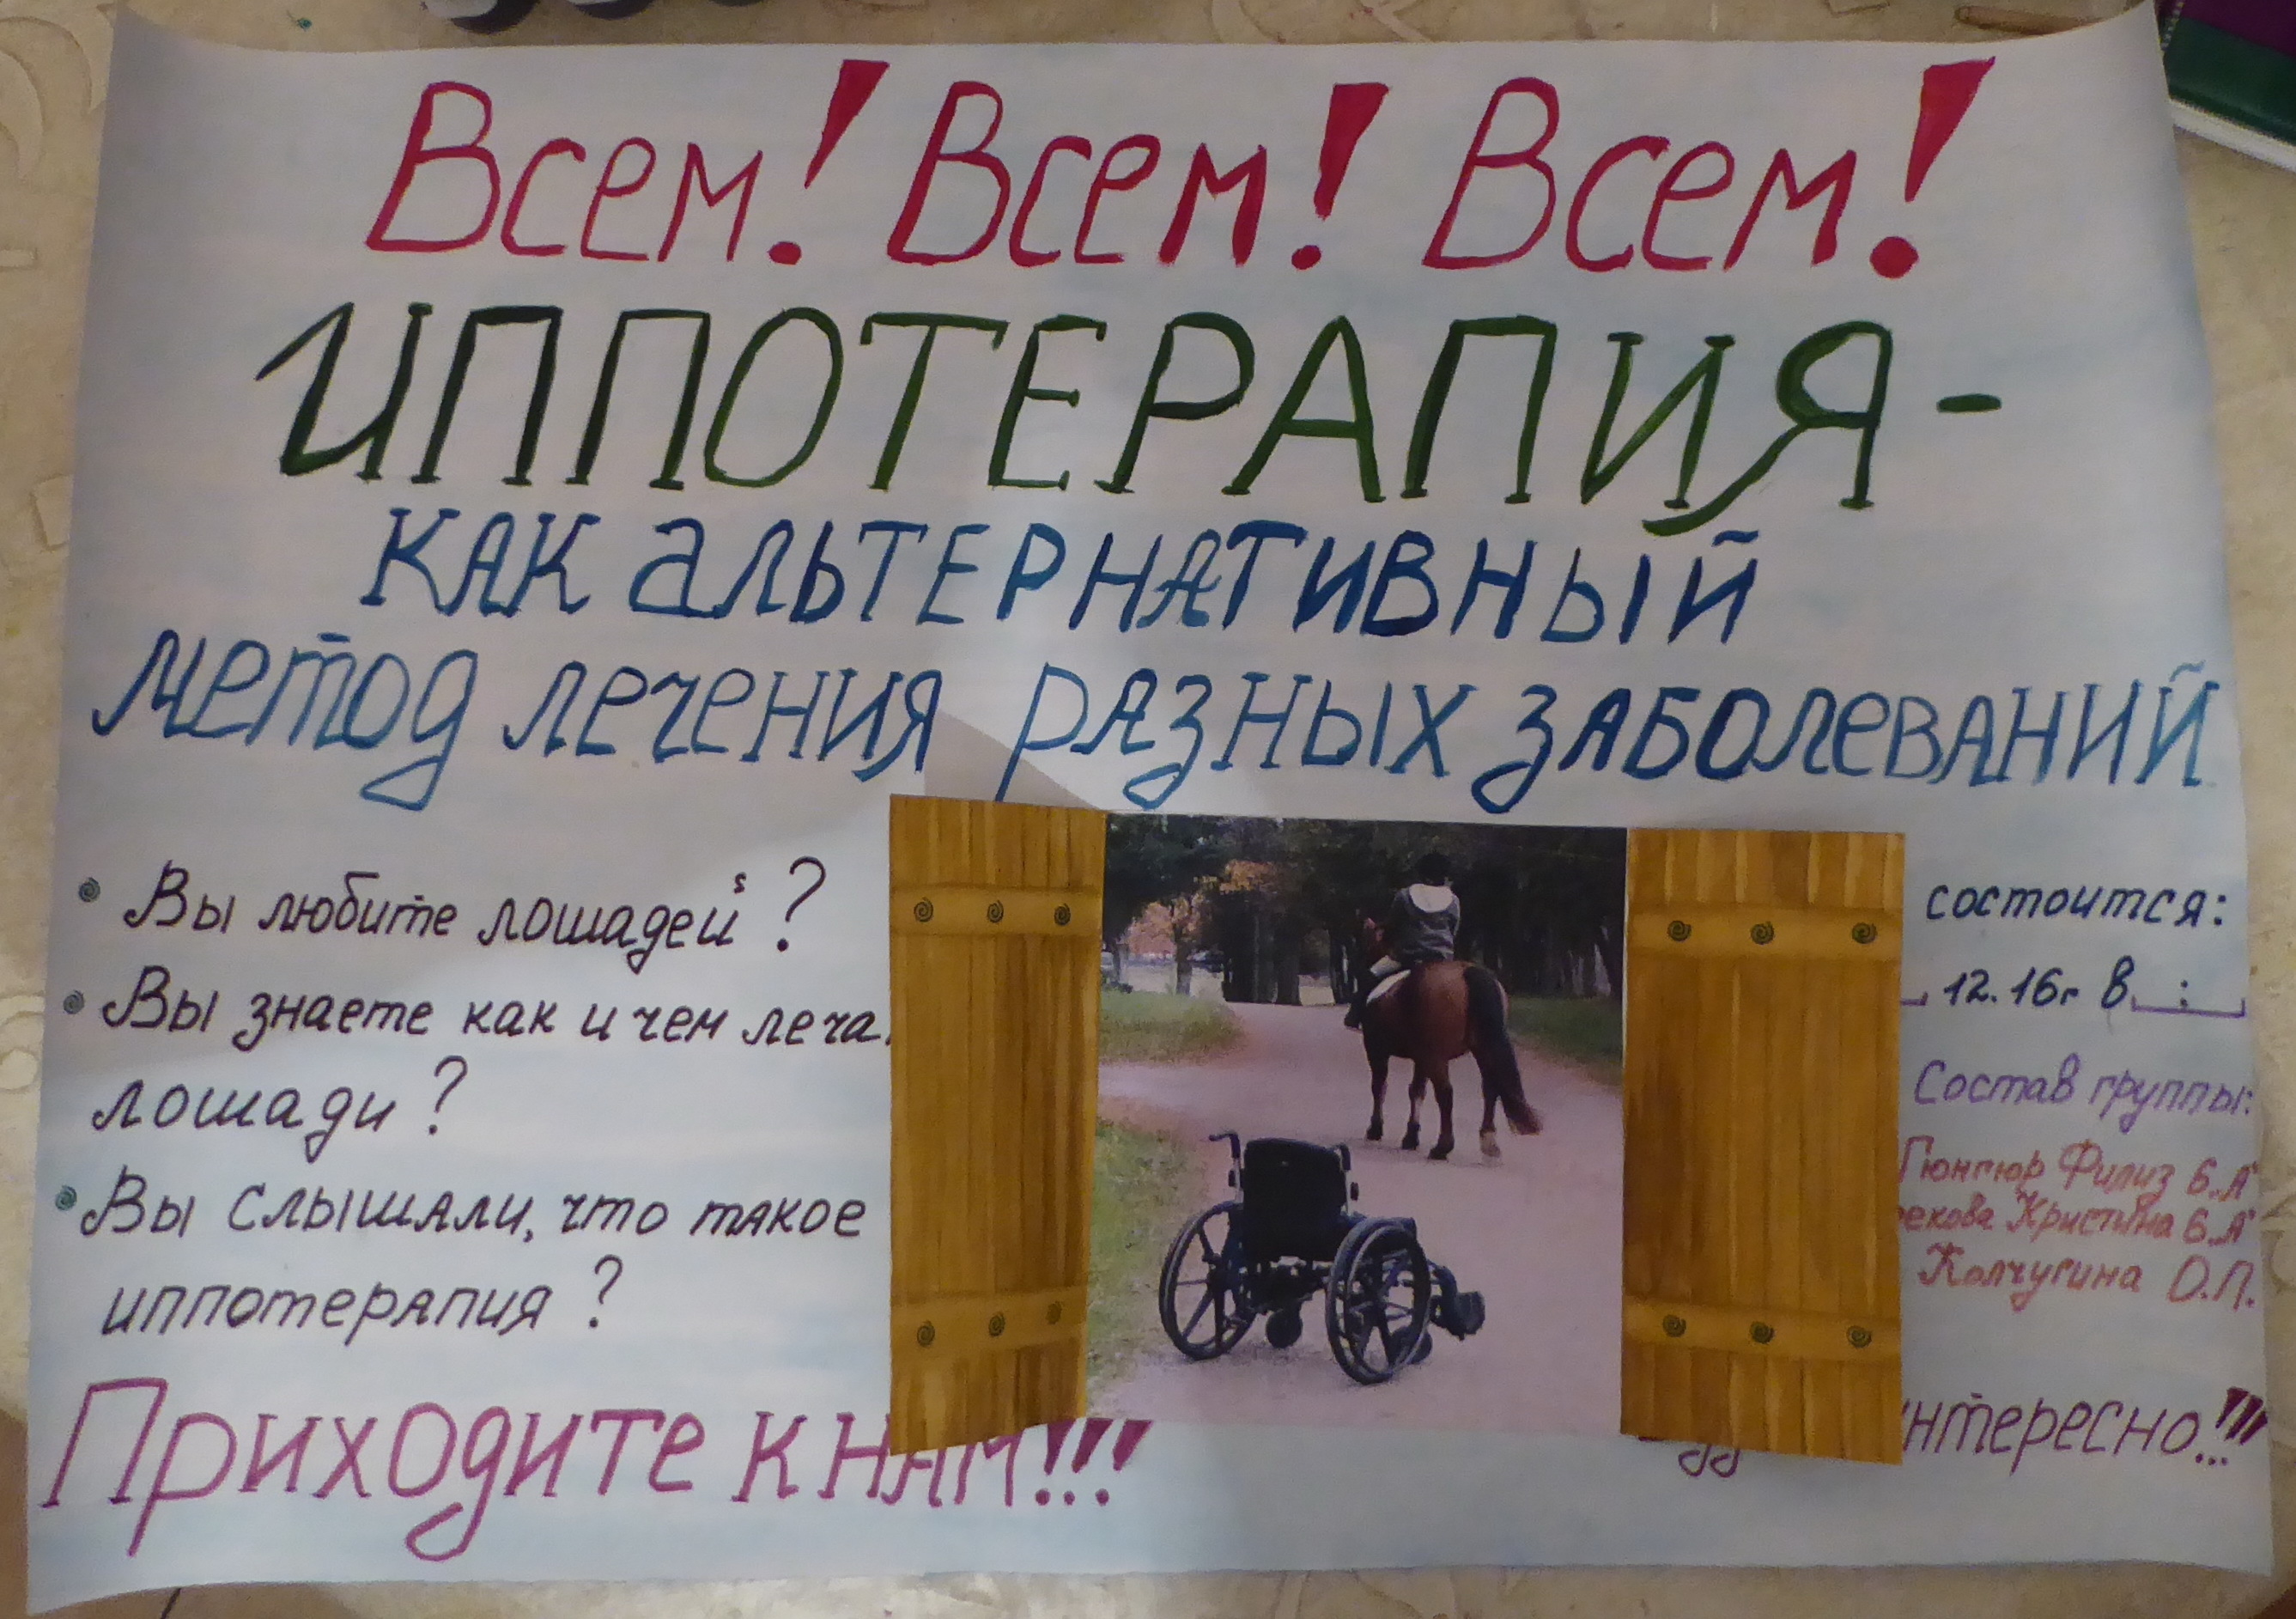 Всем! Всем! Всем!
ИППОТЕРАПИЯ-
КАК АЛЬТЕРНАТИВНЫЙ
МЕТОД ЛЕЧЕНИЯ РАЗНЫХ ЗАБОЛЕВАНИЙ
• Вы любите лошадей?
• Вы знаете как и чем леча
лошади?
• Вы слышали, что такое
иппотерапия?
Приходите к нам!!!
состоится:
12.16г в :
Состав группы:
Гюнгюр Филиз 6„А"
Кристина 6„А"
Колчугина О.П.
нтересно!!!